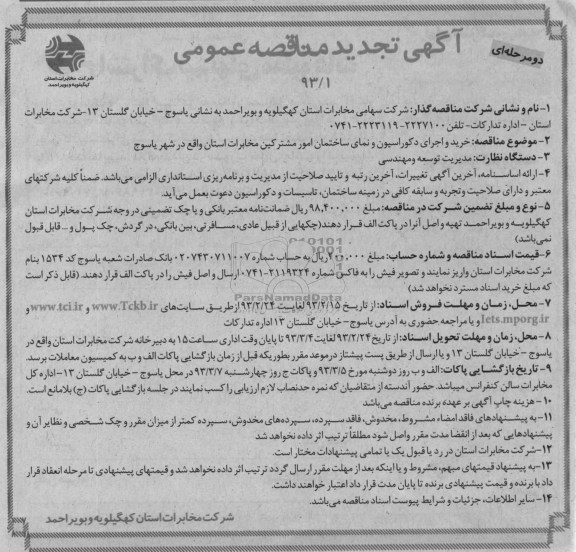 آگهی تجدید مناقصه عمومی
دو مرحله‌ای
۹۳/۱
شرکت مخابرات استان
کهگیلویه و بویراحمد
۱- نام و نشانی شرکت مناقصه‌گذار: شرکت سهامی مخابرات استان کهگیلویه و بویراحمد به نشانی یاسوج - خیابان گلستان ۱۳- شرکت مخابرات
استان - اداره تدارکات- تلفن ۲۲۲۷۱۰۰-۲۲۲۳۱۱۹-۰۷۴۱
۲- موضوع مناقصه: خرید و اجرای دکوراسیون و نمای ساختمان امور مشترکین مخابرات استان واقع در شهر یاسوج
۳- دستگاه نظارت: مدیریت توسعه و مهندسی
۴- ارائه اساسنامه، آخرین آگهی تغییرات، آخرین رتبه و تایید صلاحیت از مدیریت و برنامه‌ریزی استانداری الزامی می‌باشد. ضمناً کلیه شرکتهای
معتبر و دارای صلاحیت و تجربه و سابقه کافی در زمینه ساختمان، تاسیسات و دکوراسیون دعوت بعمل می‌آید.
۵- نوع و مبلغ تضمین شرکت در مناقصه: مبلغ ۹۸,۴۰۰,۰۰۰ ریال ضمانت‌نامه معتبر بانکی و یا چک تضمینی در وجه شرکت مخابرات استان
کهگیلویه و بویراحمد تهیه و اصل آنرا در پاکت الف قرار دهند (چکهایی از قبیل عادی، مسافرتی، بین بانکی، در گردش، چک پول و ... قابل قبول
نمی‌باشد)
۶- قیمت اسناد مناقصه و شماره حساب: مبلغ ۲۰۰,۰۰۰ ریال به حساب شماره ۰۲۰۷۴۳۰۷۱۱۰۰۷ بانک صادرات شعبه یاسوج کد ۱۵۳۴ بنام
شرکت مخابرات استان واریز نمایند و تصویر فیش را به فاکس شماره ۲۱۱۹۳۲۴-۰۷۴۱ ارسال و اصل فیش را در پاکت الف قرار دهند. (قابل ذکر است
که مبلغ خرید اسناد مسترد نخواهد شد)
۷- محل، زمان و مهلت فروش اسناد: از تاریخ ۹۳/۲/۱۵ لغایت ۹۳/۲/۲۴ از طریق سایت‌های www.Tckb.ir و www.tci.ir و
Iets.mporg.ir و یا مراجعه حضوری به آدرس یاسوج- خیابان گلستان ۱۳ اداره تدارکات
۸- محل، زمان و مهلت تحویل اسناد: از تاریخ ۹۳/۲/۲۴ لغایت ۹۳/۳/۴ تا پایان وقت اداری ساعت ۱۵ به دبیرخانه شرکت مخابرات استان واقع در
یاسوج - خیابان گلستان ۱۳ و یا ارسال از طریق پست پیشتاز در موعد مقرر بطوریکه قبل از زمان بازگشایی پاکات الف و ب به کمیسیون معاملات برسد.
۹- تاریخ بازگشایی پاکات: الف و ب روز دوشنبه مورخ ۹۳/۳/۵ و پاکات ج روز چهارشنبه ۹۳/۳/۷ در محل یاسوج - خیابان گلستان ۱۳- اداره کل
مخابرات سالن کنفرانس میباشد. حضور آندسته از متقاضیان که نمره حدنصاب لازم ارزیابی را کسب نمایند در جلسه بازگشایی پاکات (ج) بلامانع است.
۱۰- هزینه چاپ آگهی بر عهده برنده مناقصه می‌باشد
۱۱- به پیشنهادهای فاقد امضاء مشروط، مخدوش، فاقد سپرده، سپرده‌های مخدوش، سپرده کمتر از میزان مقرر و چک شخصی و نظایر آن و
پیشنهادهایی که بعد از انقضا مدت مقرر واصل شود مطلقاً ترتیب اثر داده نخواهد شد
۱۲- شرکت مخابرات استان در رد یا قبول یک یا تمامی پیشنهادات مختار است.
۱۳- به پیشنهاد قیمتهای مبهم، مشروط و یا اینکه بعد از مهلت مقرر ارسال گردد ترتیب اثر داده نخواهد شد و قیمتهای پیشنهادی تا مرحله انعقاد قرار
داد با برنده و قیمت پیشنهادی برنده تا پایان مدت قرار داد اعتبار خواهند داشت.
۱۴- سایر اطلاعات، جزئیات و شرایط پیوست اسناد مناقصه می‌باشد.
شرکت مخابرات استان کهگیلویه و بویراحمد
ParsNamadData